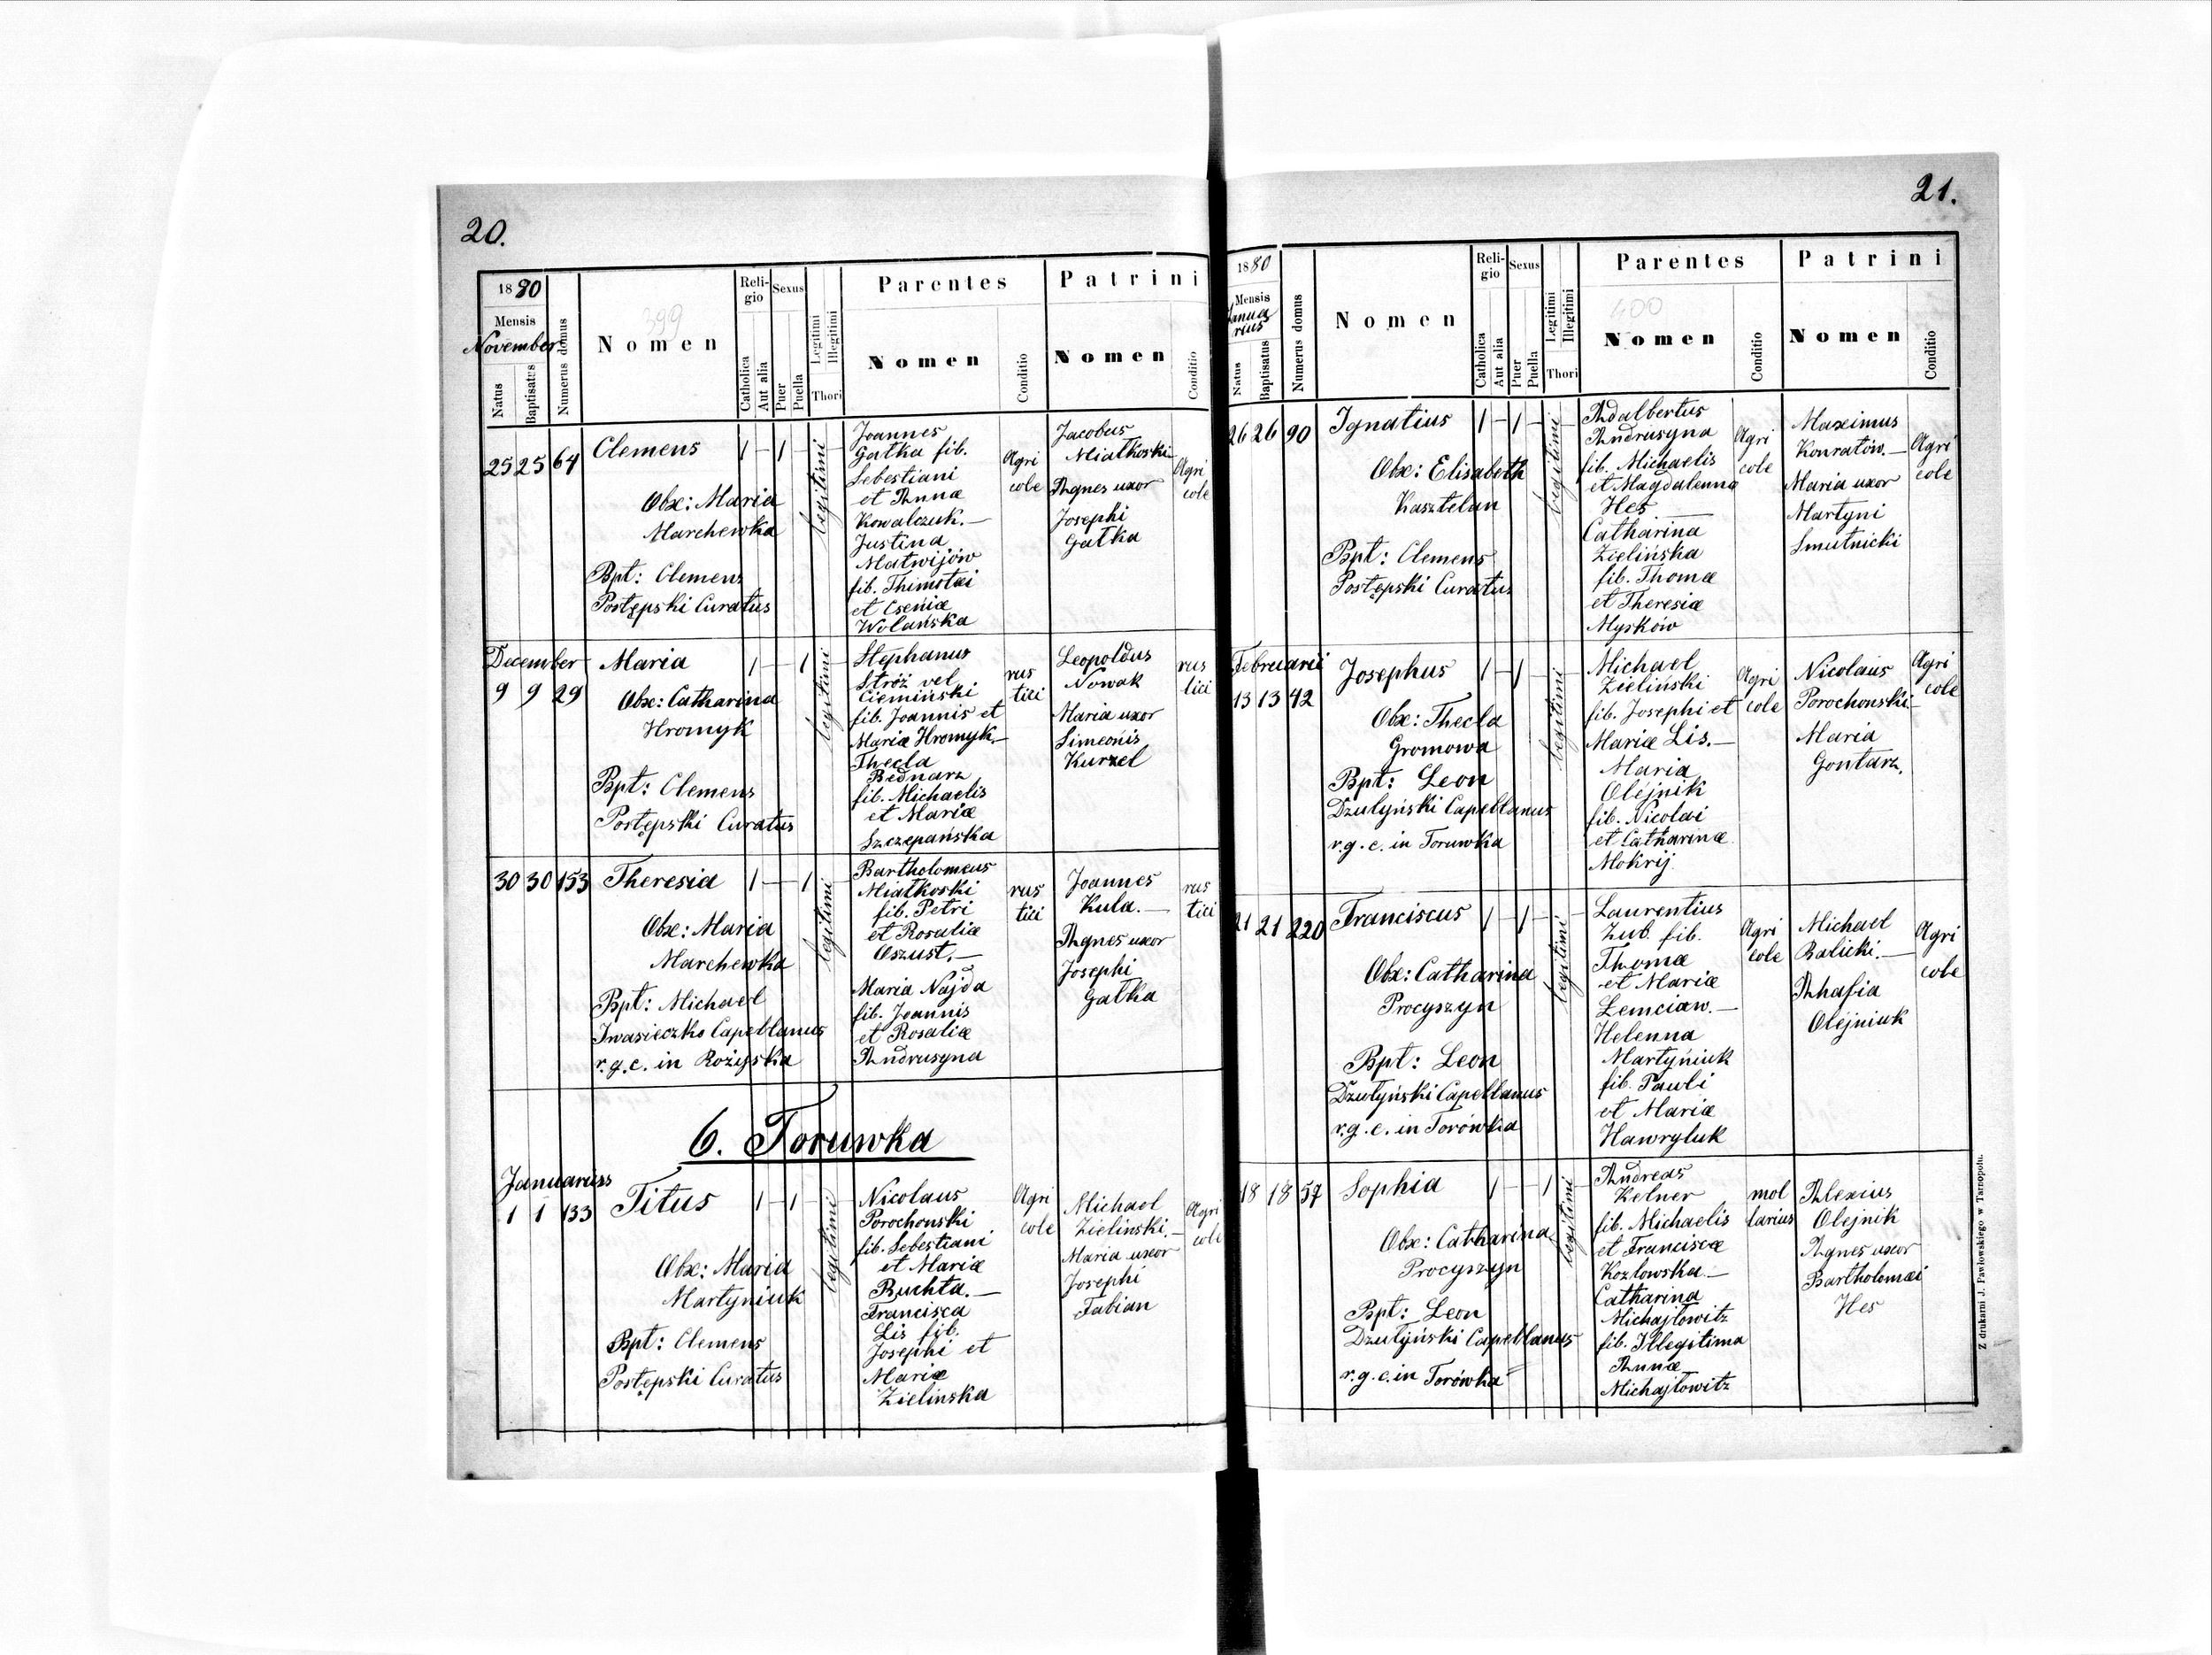 20.
1880
Mensis
November
Natus
Baptisatus
Numerus domus
Nomen
399
Religio
Catholica
Aut alia
Sexus
Puer
Puella
Legitimi
Illegitimi
Thori
Parentes
Nomen
Conditio
Patrini
Nomen
Conditio
25 25 64
Clemens
1 - 1 -
legitimi
Obx: Maria
Marchewka
Bpt: Clemens
Postępski Curatus
Joannes
Gatka fib.
Sebestiani
et Annæ
Kowalczuk.—
Justina
Matwijów
fib. Thimotæi
et Cseniæ
Wolańska
Agri
cole
Jacobus
Miatkoski
Agnes uxor
Josephi
Gatka
Agri
cole
December
9 9 29
Maria
1 - 1 -
legitimi
Obx: Catharina
Hromyk
Bpt: Clemens
Postępski Curatus
Stephanus
Stróż vel
Ciemiński
fib. Joannis et
Mariæ Hromyk.—
Thecla
Bednarz
fib. Michaelis
et Mariæ
Szczepańska
rus
tici
Leopoldus
Nowak
Maria uxor
Simeonis
Kurzel
rus
tici
30 30 153
Theresia
1 - 1 -
legitimi
Obx: Maria
Marchewka
Bpt: Michael
Iwasieczko Capellanus
r.g.c. in Rożyska
Bartholomeus
Miatkoski
fib. Petri
et Rosaliæ
Oszust.—
Maria Najda
fib. Joannis
et Rosaliæ
Andrusyna
rus
tici
Joannes
Kula.—
Agnes uxor
Josephi
Gatka
rus
tici
6. Toruwka
Januariuss
1 1 133
Titus
1 - 1 -
legitimi
Obx: Maria
Martyniuk
Bpt: Clemens
Postępski Curatus
Nicolaus
Porochonski
fib. Sebestiani
et Mariæ
Ruchta.—
Francisca
Lis fib.
Josephi et
Mariæ
Zielinska
Agri
cole
Michael
Zielinski.—
Maria uxor
Josephi
Fabian
Agri
cole
21.
1880
Mensis
Janua
rius
Natus
Baptisatus
Numerus domus
Nomen
Religio
Catholica
Aut alia
Sexus
Puer
Puella
Legitimi
Illegitimi
Thori
Parentes
400
Nomen
Conditio
Patrini
Nomen
Conditio
26 26 90
Ignatius
1 - 1 -
legitimi
Obx: Elisabeth
Kasztelan
Bpt: Clemens
Postępski Curatus
Adalbertus
Andrusyna
fib. Michaelis
et Magdalennæ
Hes
Catharina
Zielińska
fib. Thomæ
et Theresiæ
Mysków
Agri
cole
Maximus
Konratów.—
Maria uxor
Martyni
Smutnicki
Agri
cole
Februarii
13 13 42
Josephus
1 - 1 -
legitimi
Obx: Thecla
Gromowa
Bpt: Leon
Dzułyński Capellanus
r.g.c. in Toruwka
Michael
Zieliński
fib. Josephi et
Mariæ Lis.—
Maria
Olejnik
fib. Nicolai
et Catharinæ
Mokrij
Agri
cole
Nicolaus
Porochonski—
Maria
Gontarz.
Agri
cole
21 21 220
Franciscus
1 - 1 -
legitimi
Obx: Catharina
Procyszyn
Bpt: Leon
Dzułyński Capellanus
r.g.c. in Torówka
Laurentius
Zub. fib.
Thomæ
et Mariæ
Łemciaw.—
Helenna
Martyńiuk
fib. Pauli
et Mariæ
Hawryluk
Agri
cole
Michael
Balicki.—
Ahafia
Olejniuk
Agri
cole
18 18 57
Sophia
1 - 1
legitimi
Obx: Catharina
Procyszyn
Bpt: Leon
Dzułyński Capellanus
r.g.c. in Torówka
Andreas
Kelner
fib. Michaelis
et Franciscæ
Kozlowska.—
Catharina
Michajłowitz
fib. Illegitima
Annæ
Michajłowitz
mol
larius
Alexius
Olejnik
Agnes uxor
Bartholomæi
Hes
Z drukarni J. Pawłowskiego w Tarnopolu.